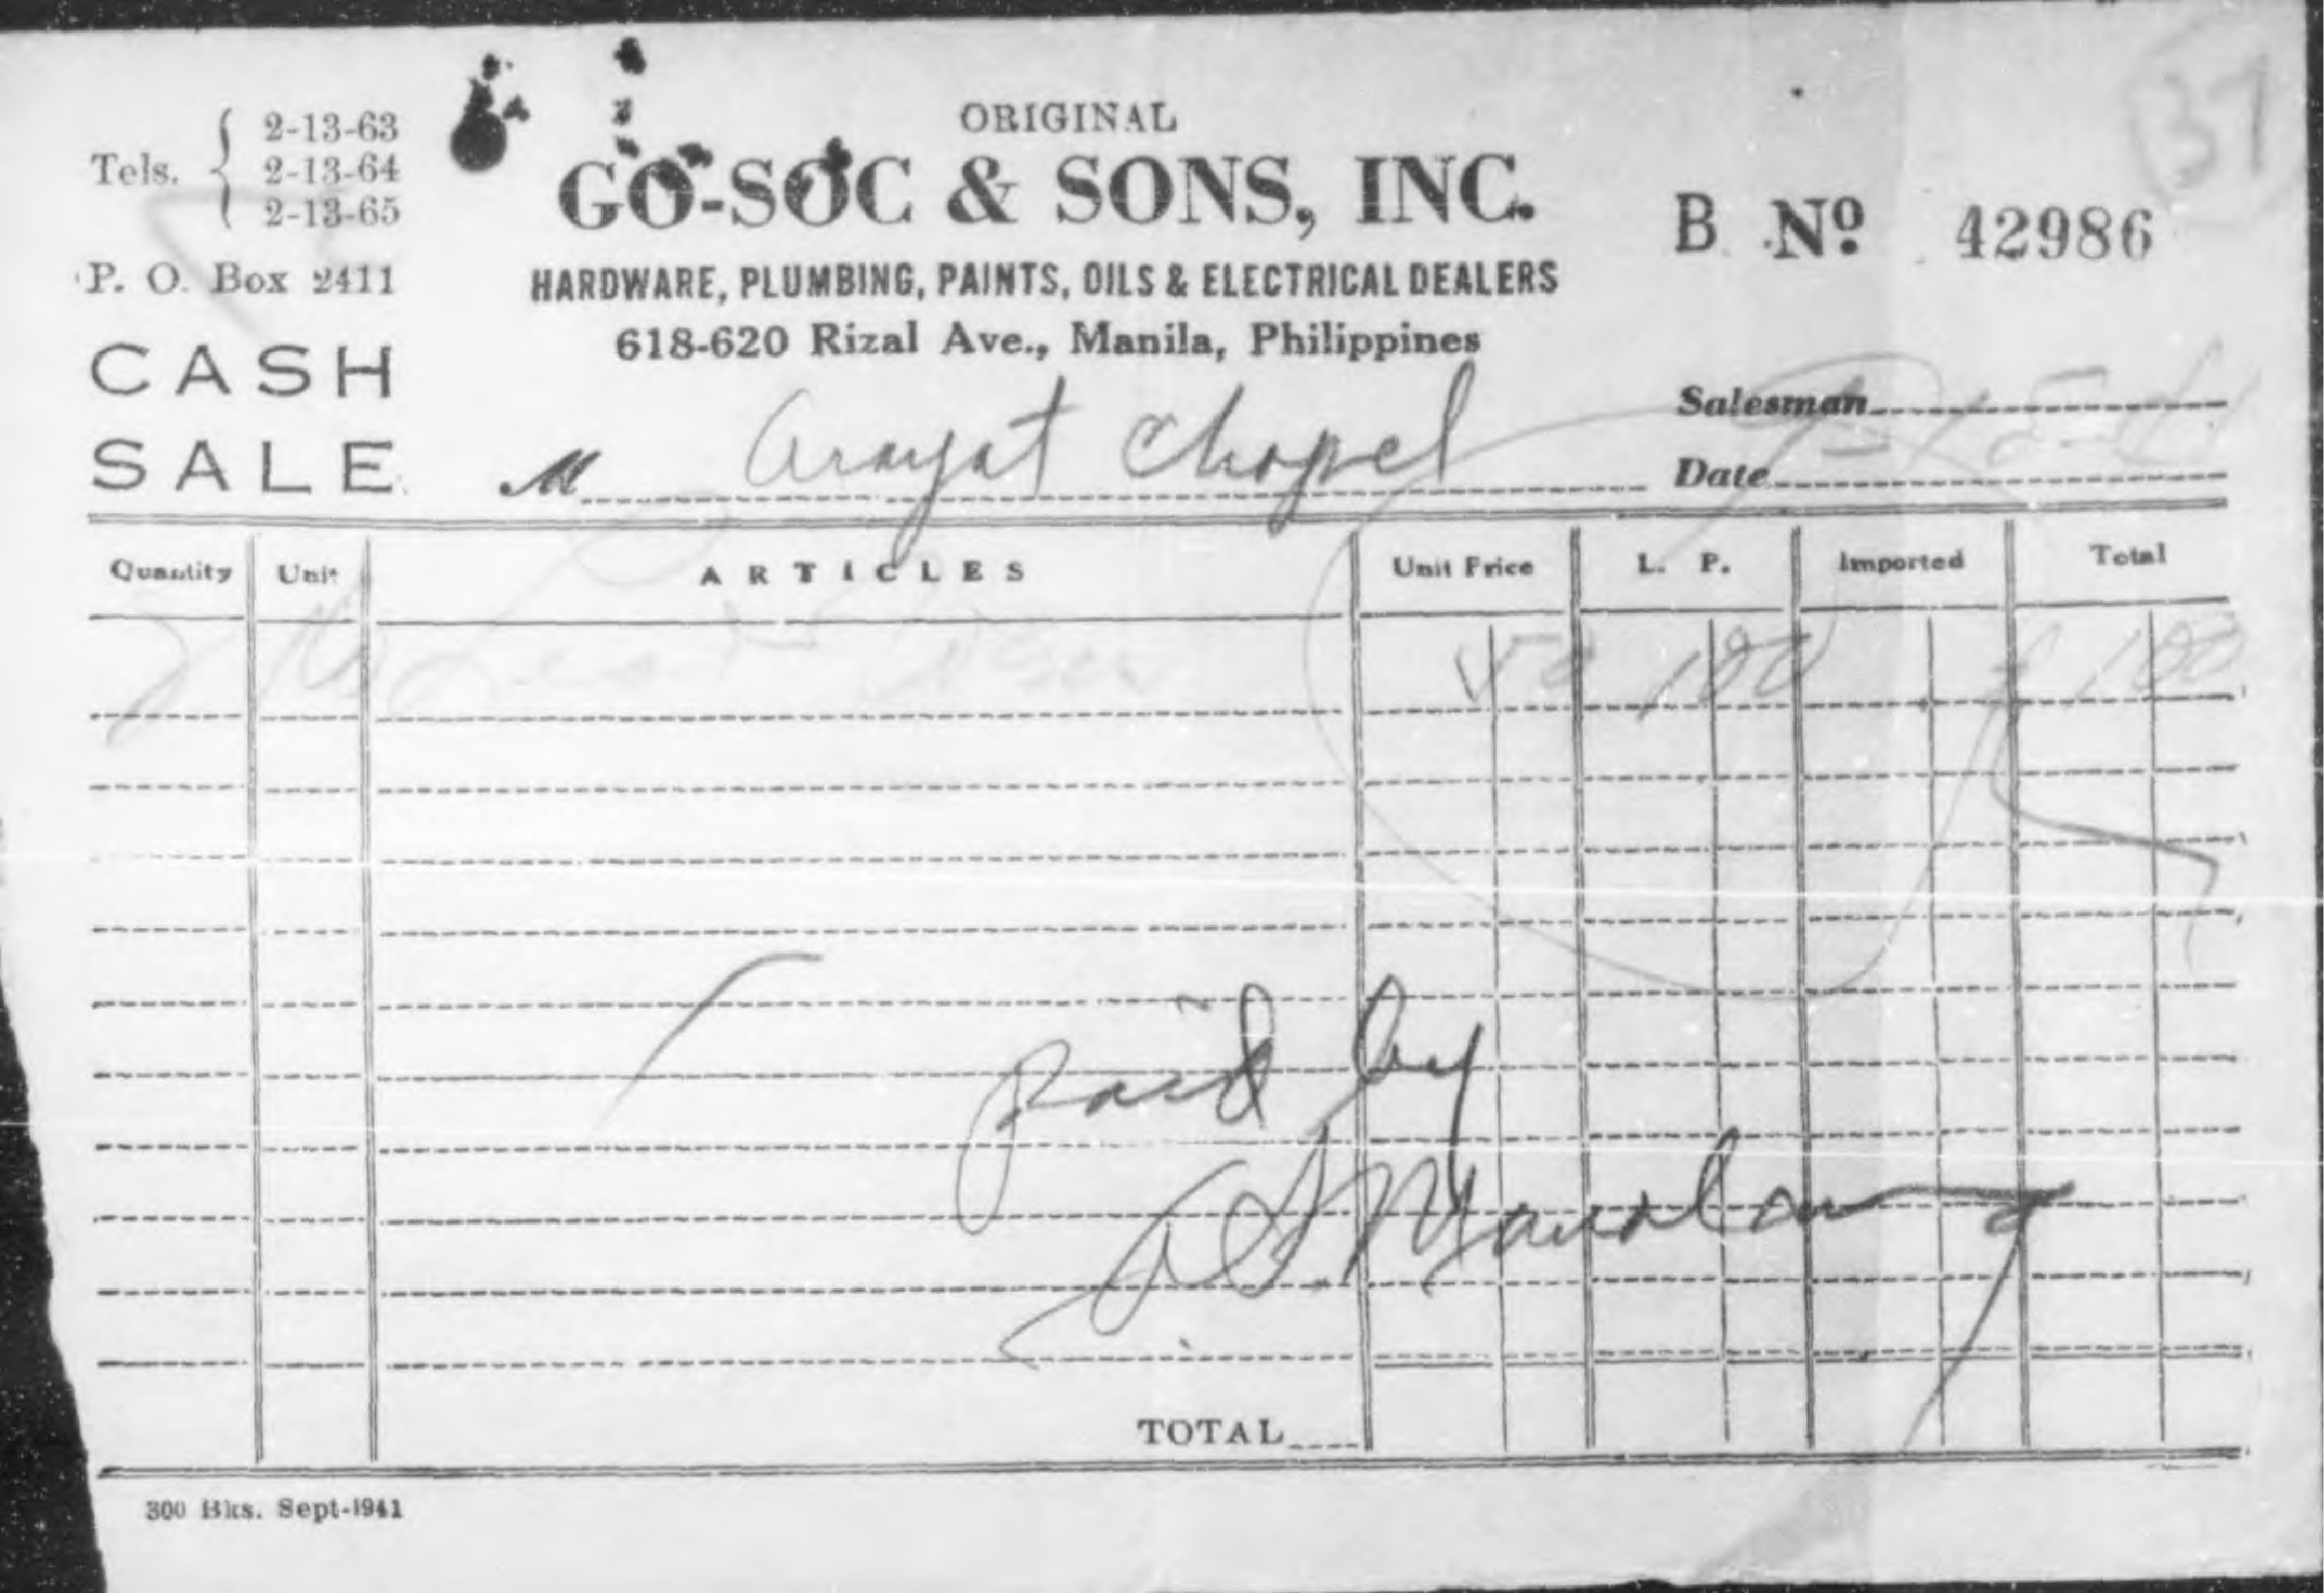 ORIGINAL
37
Tels. 2-13-63
2-13-64
2-13-65
P. O. Box 2411
GO-SOC & SONS, INC.
HARDWARE, PLUMBING, PAINTS, OILS & ELECTRICAL DEALERS
618-620 Rizal Ave., Manila, Philippines
B Nº 42986
CASH
SALE
Salesman
M Arayat Chapel
Date
Quantity Unit ARTICLES Unit Price L. P. Imported Total
2 50 1 00 1 00
paid by
TOTAL
300 Bks. Sept-1941